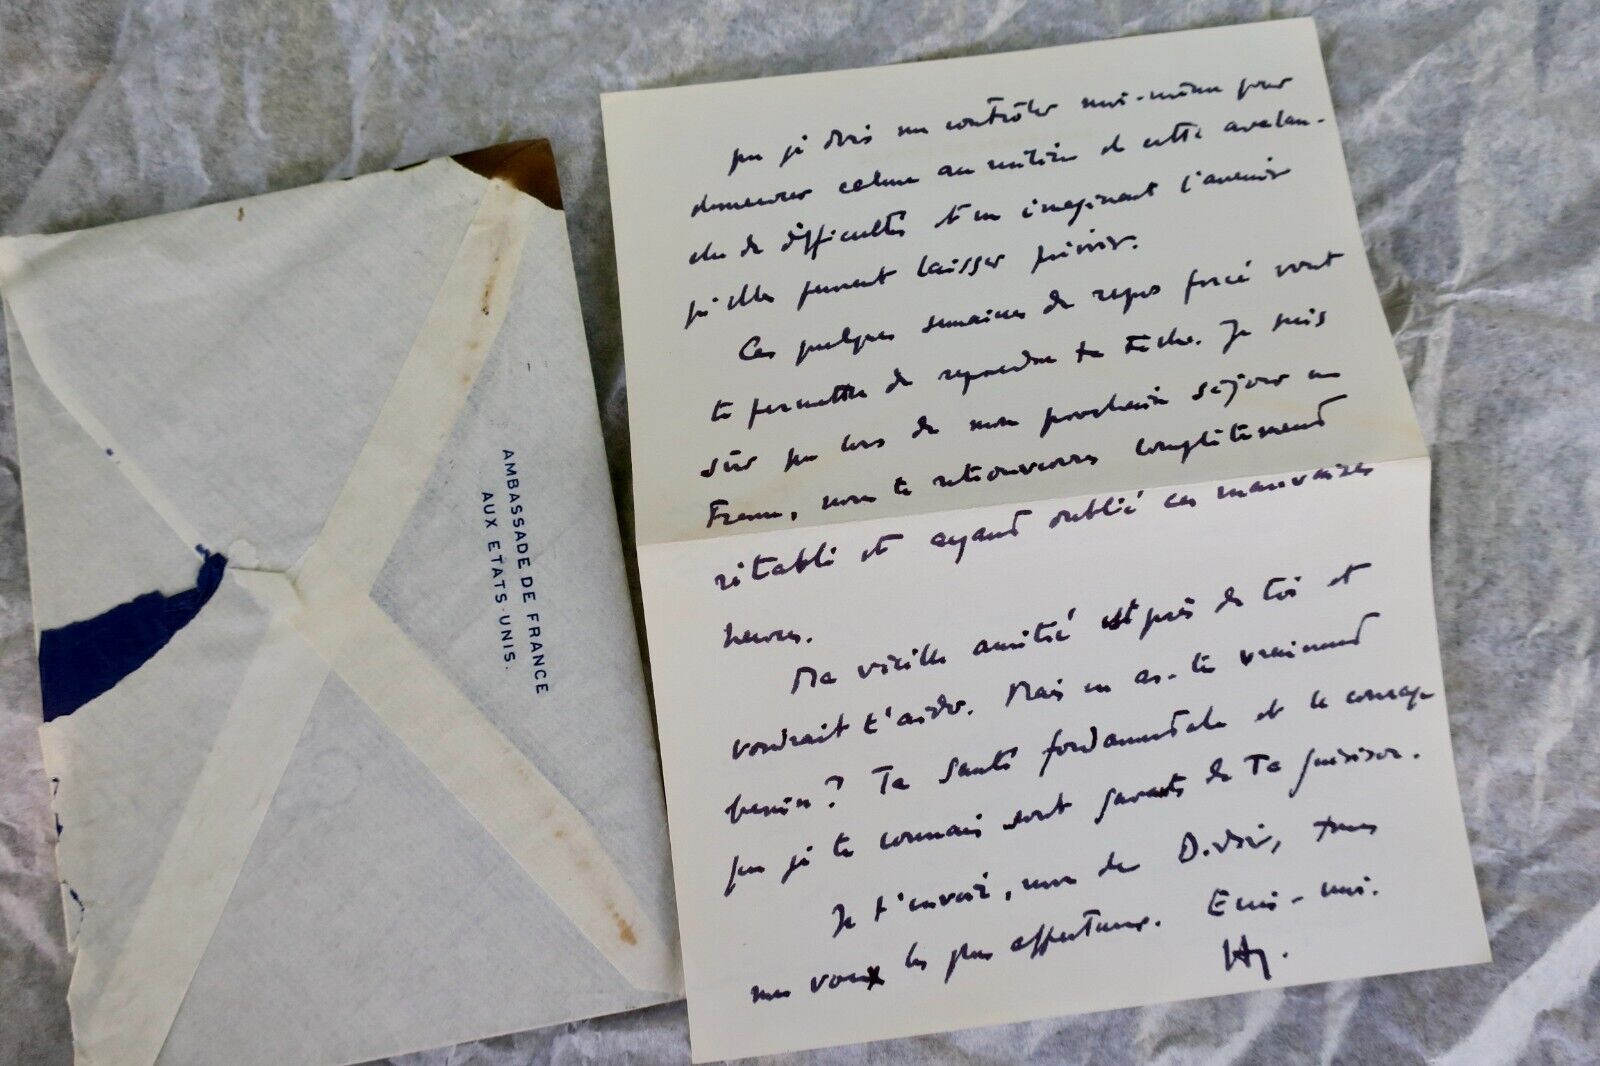 AMBASSADE DE FRANCE
AUX ETATS-UNIS.
que je dois me contrôler moi-même pour
demeurer calme au milieu de cette avalan-
che de difficultés et en imaginant l'avenir
qu'elles peuvent laisser prévoir.
Ces quelques semaines de repos forcé vont
te permettre de reprendre ta tâche. Je suis
sûr que lors de mon prochain séjour en
France, nous te retrouverons complètement
rétabli et ayant oublié ces mauvaises
heures.
Ma vieille amitié est près de toi et
voudrait t'aider. Mais en as-tu vraiment
besoin? Ta santé fondamentale et le courage
que je te connais sont garants de ta guérison.
Je t'envoie, avec, tous
mes voeux les plus affectueux. Ecris-moi.
Hy.